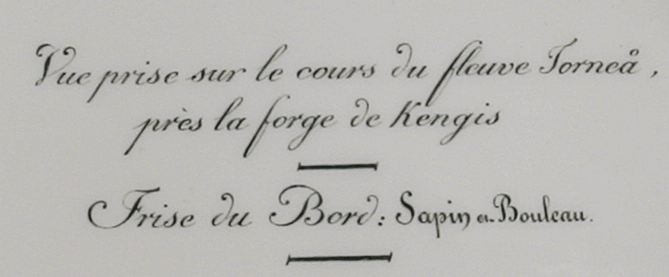 Vue prise sur le cours du fleuve Torneå,
près la forge de Kengis
Frise du Bord: Sapin et Bouleau.